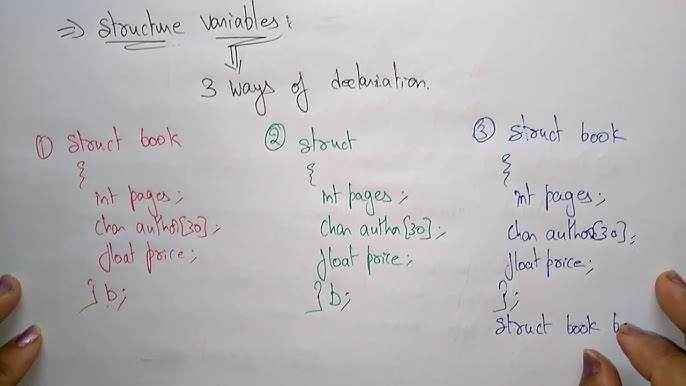 ⇒ structure variables:
3 ways of declaration.
① struct book
{
int pages;
char author[30];
float price;
} b;
② struct
{
int pages;
char author[30];
float price;
} b;
③ struct book
{
int pages;
char author[30];
float price;
};
struct book b